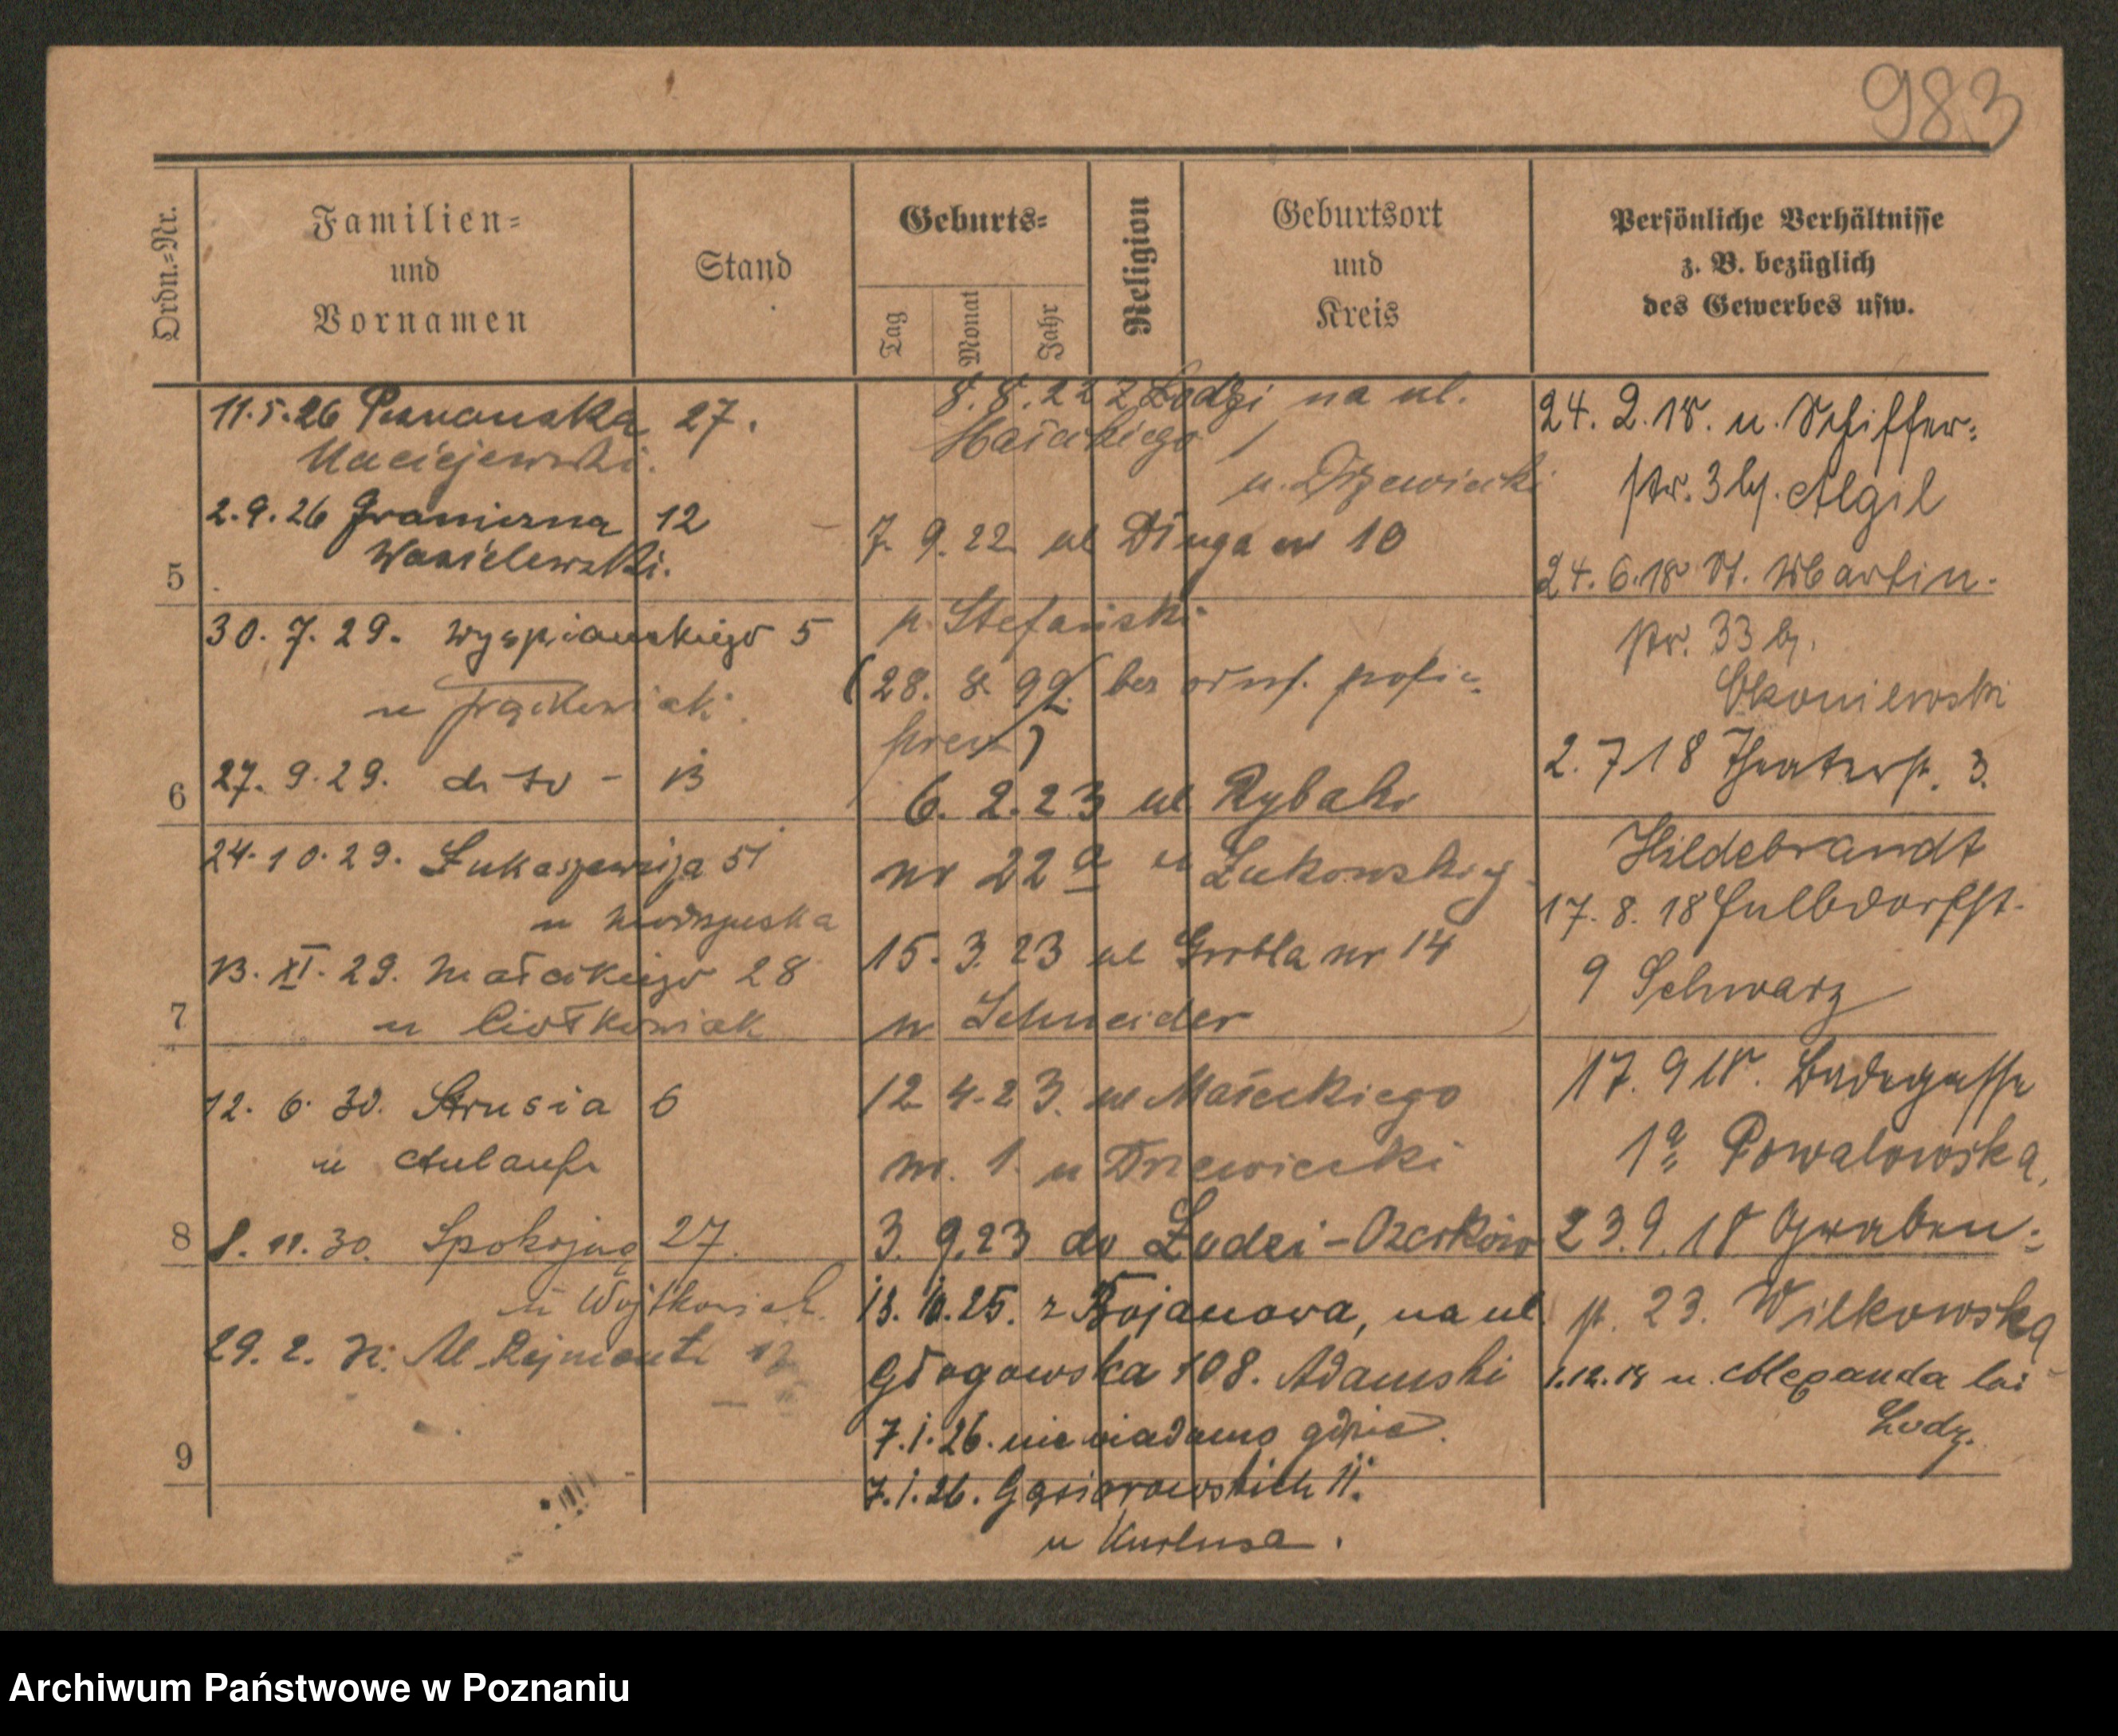 983
Ordn.=Nr.
Familien=
und
Vornamen
Stand
Geburts=
Tag
Monat
Jahr
Religion
Geburtsort
und
Kreis
Persönliche Verhältnisse
z. B. bezüglich
des Gewerbes usw.
11.5.26 Poznańska 27.
Maciejewski.
2.9.26 Graniczna 12
Wasielewski.
5
30. 7. 29. Wyspiańskiego 5
u
27. 9. 29. dito - 13
6
24. 10. 29. Łukaszewicza 51
u
13. XI. 29. Małeckiego 28
u Ciołkowiak
7
12. 6. 30. Strusia 6
u
8. 11. 30. Spokojną 27.
8
u Wojtkowiak
29. 2. Al. Rejmonta
9
8. 8. 22 z Łodzi na ul.
Małeckiego
u. Drzewiecki
7. 9. 22 ul Długa nr 10
p. Stefański
(28. 8. 22
)
6. 2. 23 ul Rybaki
nr 22a u Łukowskiej
15. 3. 23 ul Grobla nr 14
u Schneider
12 4. 23. ul Małeckiego
nr. 1. u Drzewiecki
3. 9. 23 do Łodzi - Ozorków
13. 10. 25. z Bojanowa, na ul.
Głogowska 108. Adamski
7. 1. 26. niewiadomo gdzie.
7. 1. 26. Gąsiorowskich 11.
u Kurlusa.
24. 2. 18. u. Schiffer=
str. 3 bj.
24. 6. 18 St. Martin.
str. 33 bj.
Okoniewski
2. 7 18 Theaterstr. 3.
Hildebrandt
17. 8. 18
9 Schwarz
17. 9 18. Badegasse
1a Powalowska,
23. 9. 18 Graben=
p. 23. Wilkowska
1.12.18 n. bei
Lodz.
Archiwum Państwowe w Poznaniu